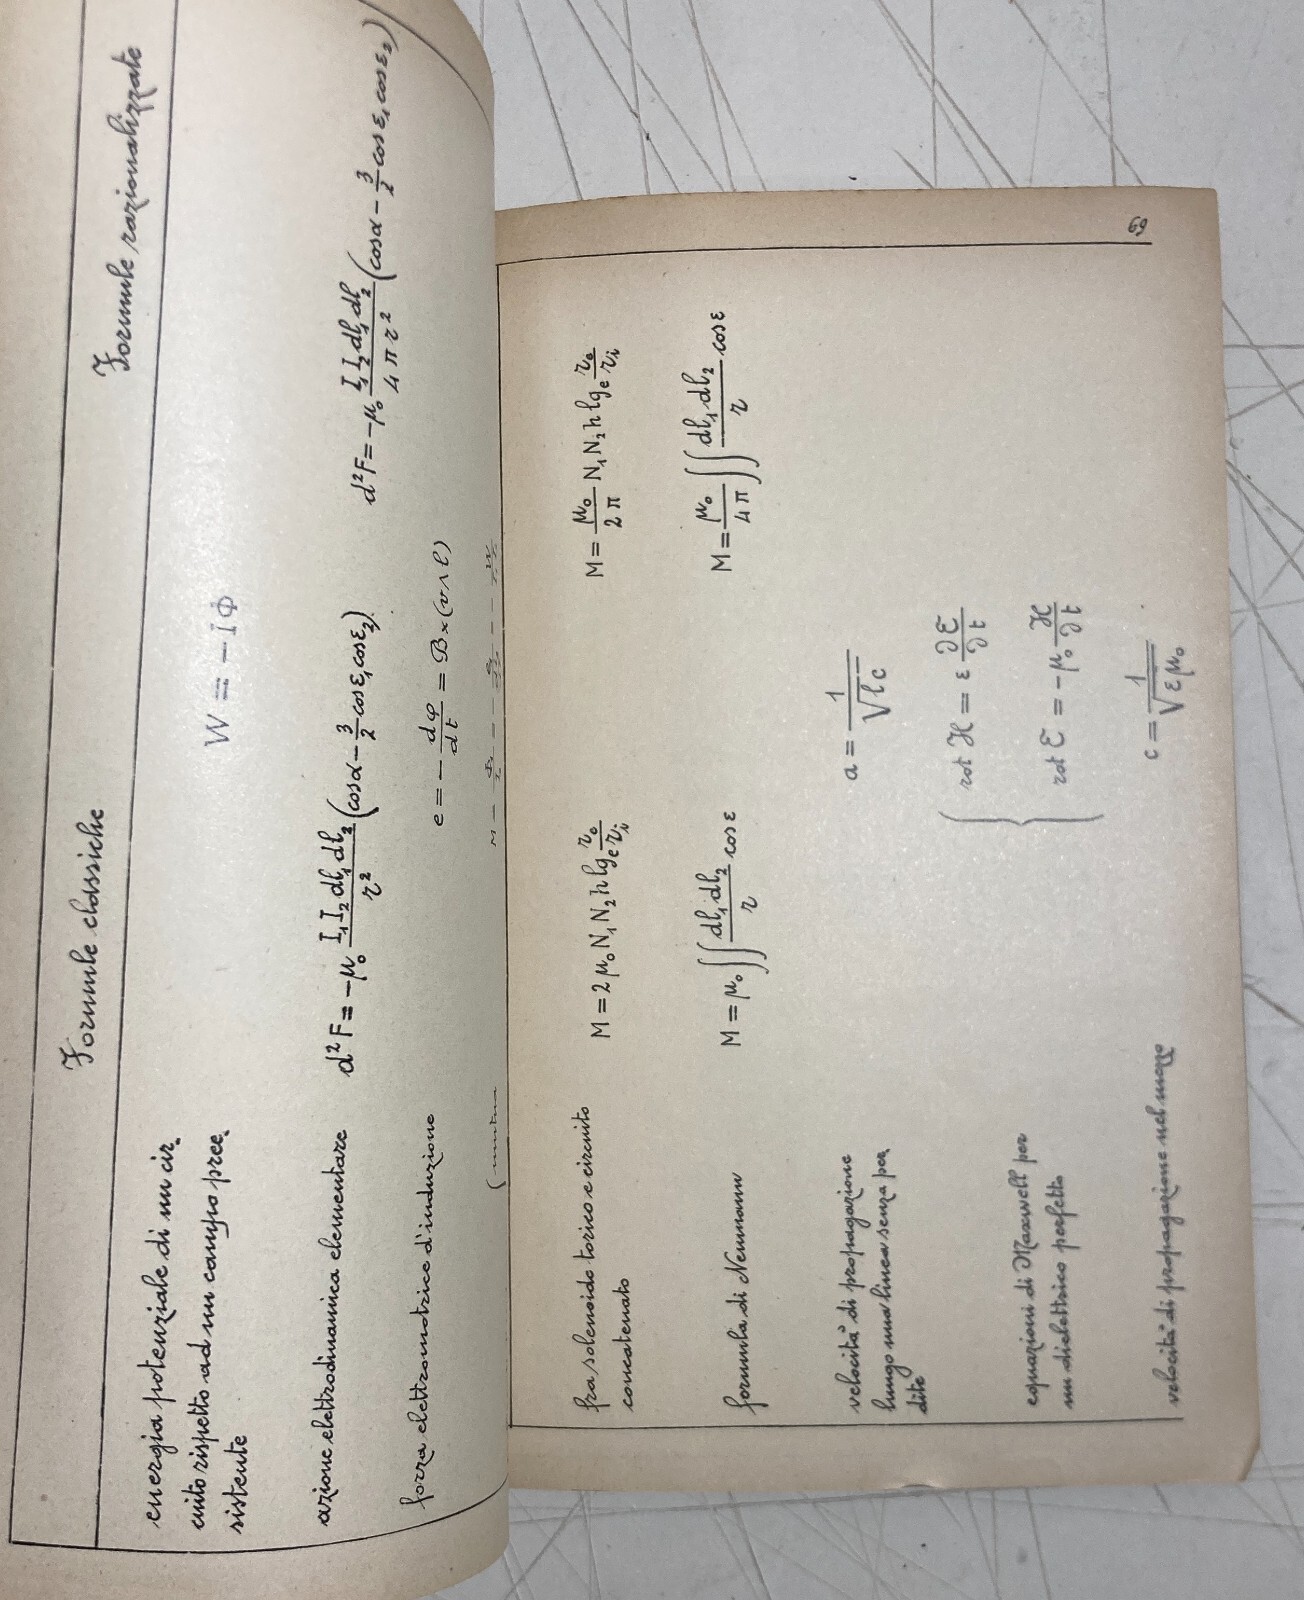 Formule classiche
Formule razionalizzate
energia potenziale di un cir-
cuito rispetto ad un campo pree-
sistente
W = − IΦ
azione elettrodinamica elementare
d²F = −μ₀ I₁I₂dl₁dl₂/r² (cosα − 3/2 cosε₁cosε₂)
d²F = −μ₀ I₁I₂dl₁dl₂/4πr² (cosα − 3/2 cosε₁cosε₂)
forza elettromotrice d'induzione
e = − dφ/dt = B×(v∧l)
fra solenoide torico e circuito
concatenato
M = 2μ₀N₁N₂h lgₑ rₑ/rᵢ
M = μ₀/2π N₁N₂h lgₑ rₑ/rᵢ
formula di Neumann
M = μ₀ ∫∫ dl₁dl₂/r cosε
M = μ₀/4π ∫∫ dl₁dl₂/r cosε
velocità di propagazione
lungo una linea senza per-
dite
a = 1/√lc
equazioni di Maxwell per
un dielettrico perfetto
rot H = ε ∂E/∂t
rot E = −μ₀ ∂H/∂t
velocità di propagazione nel mezzo
c = 1/√εμ₀
69